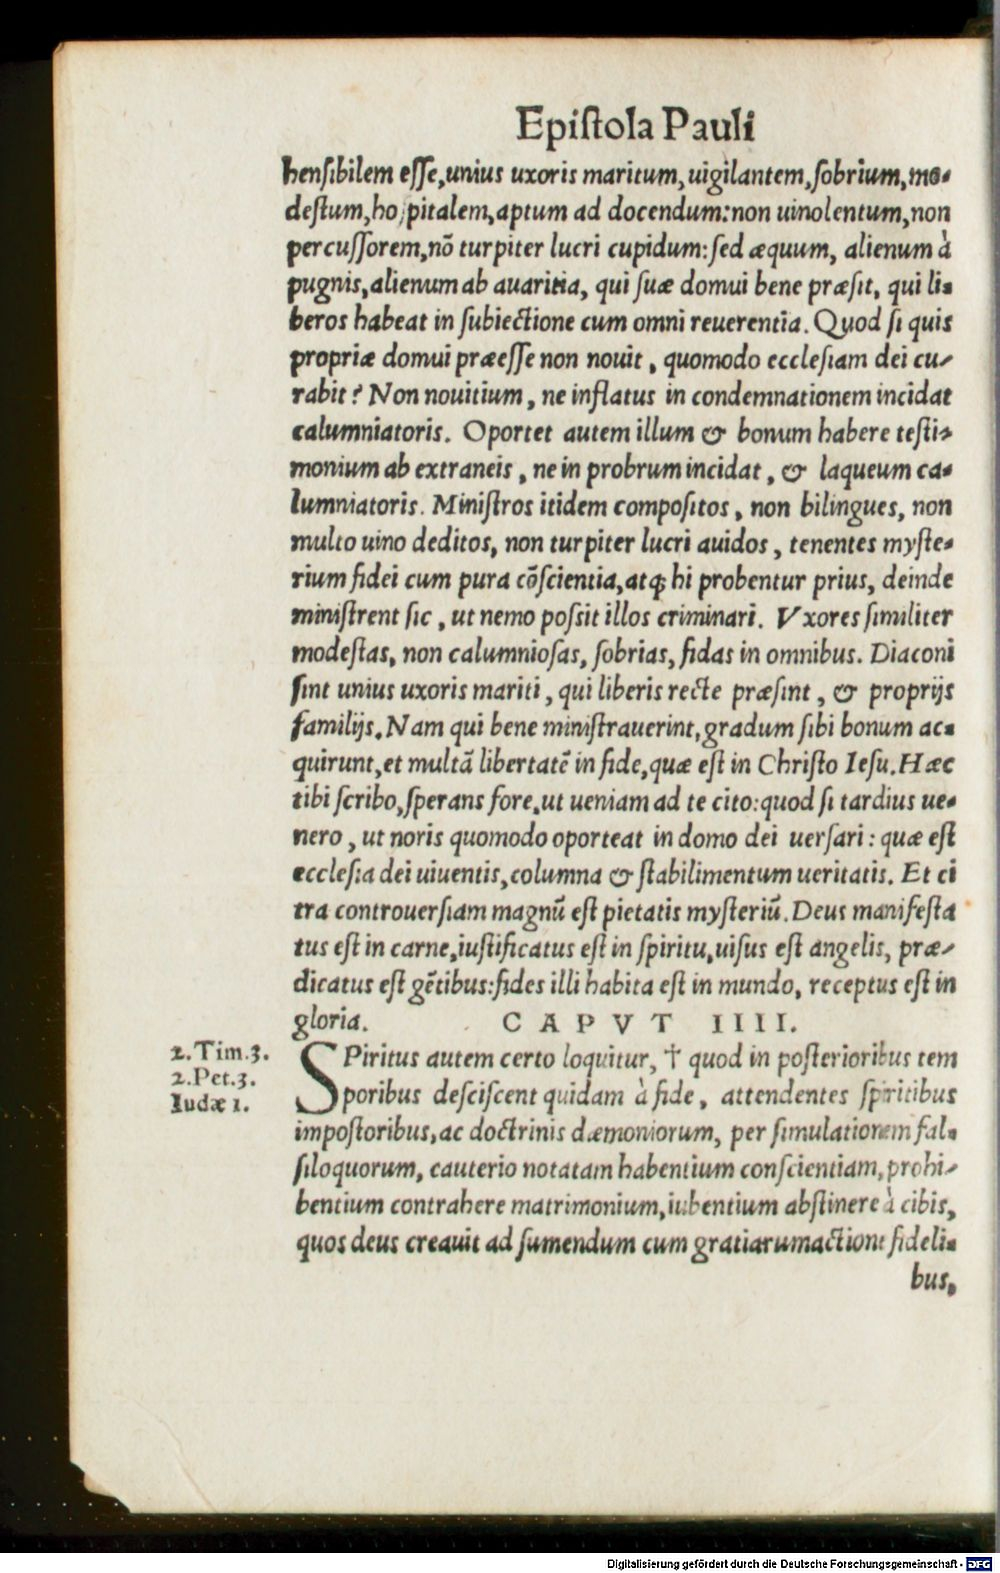 Epiſtola Pauli
henſibilem eſſe, unius uxoris maritum, uigilantem, ſobrium, mo-
deſtum, hoſpitalem, aptum ad docendum: non uinolentum, non
percuſſorem, nõ turpiter lucri cupidum: ſed æquum, alienum à
pugnis, alienum ab auaritia, qui ſuæ domui bene præſit, qui li-
beros habeat in ſubiectione cum omni reuerentia. Quod ſi quis
propriæ domui præeſſe non nouit, quomodo eccleſiam dei cu-
rabit? Non nouitium, ne inflatus in condemnationem incidat
calumniatoris. Oportet autem illum & bonum habere teſti-
monium ab extraneis, ne in probrum incidat, & laqueum ca-
lumniatoris. Miniſtros itidem compoſitos, non bilingues, non
multo uino deditos, non turpiter lucri auidos, tenentes myſte-
rium fidei cum pura cõſcientia, atq; hi probentur prius, deinde
miniſtrent ſic, ut nemo poſsit illos criminari. Vxores ſimiliter
modeſtas, non calumnioſas, ſobrias, fidas in omnibus. Diaconi
ſint unius uxoris mariti, qui liberis recte præſint, & proprijs
familijs. Nam qui bene miniſtrauerint, gradum ſibi bonum ac-
quirunt, et multã libertatẽ in fide, quæ eſt in Chriſto Ieſu. Hæc
tibi ſcribo, ſperans fore, ut ueniam ad te cito: quod ſi tardius ue-
nero, ut noris quomodo oporteat in domo dei uerſari: quæ eſt
eccleſia dei uiuentis, columna & ſtabilimentum ueritatis. Et ci
tra controuerſiam magnũ eſt pietatis myſteriũ. Deus manifeſta
tus eſt in carne, iuſtificatus eſt in ſpiritu, uiſus eſt angelis, præ-
dicatus eſt gẽtibus: fides illi habita eſt in mundo, receptus eſt in
gloria. CAPVT IIII.
2.Tim.3.
2.Pet.3.
Iudæ 1.
SPiritus autem certo loquitur, † quod in poſterioribus tem
poribus deſciſcent quidam à fide, attendentes ſpiritibus
impoſtoribus, ac doctrinis dæmoniorum, per ſimulationem fal-
ſiloquorum, cauterio notatam habentium conſcientiam, prohi-
bentium contrahere matrimonium, iubentium abſtinere à cibis,
quos deus creauit ad ſumendum cum gratiarumactione fideli-
bus,
Digitalisierung gefördert durch die Deutsche Forschungsgemeinschaft - DFG